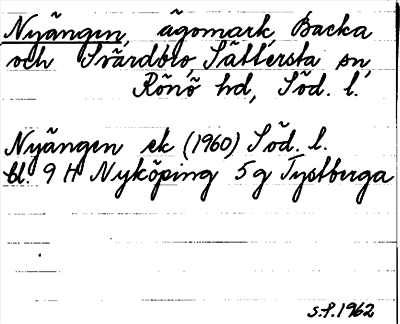 Nyängen, ägomark, Backa
och Svärdbro, Sättersta sn,
Rönö hd, Söd. l.
Nyängen ek (1960) Söd. l.
bl. 9 H Nyköping 5 g Tystberga
s.f. 1962